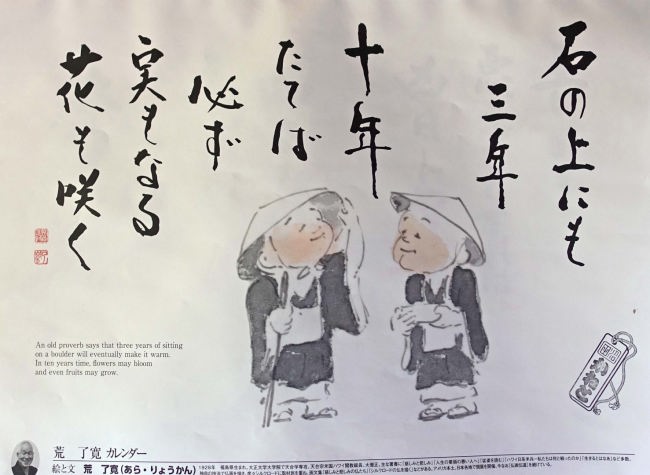 石の上にも
三年
十年
たてば
必ず
実もなる
花も咲く
An old proverb says that three years of sitting
on a boulder will eventually make it warm.
In ten years time, flowers may bloom
and even fruits may grow.
荒 了寛 カレンダー
絵と文 荒 了寛(あら・りょうかん)